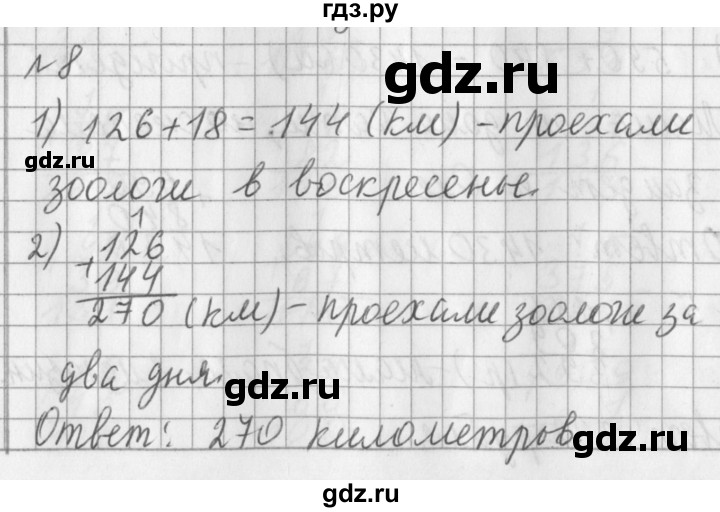 гдз.ру
№8
gdz.ru
1) 126+18=144 (км) - проехали
gdz.ru
зоологи в воскресенье.
1
2) 126
+144
270 (км) - проехали зоологи за
два дня.
gdz.ru
Ответ: 270 километров
gdz.ru
gdz.ru